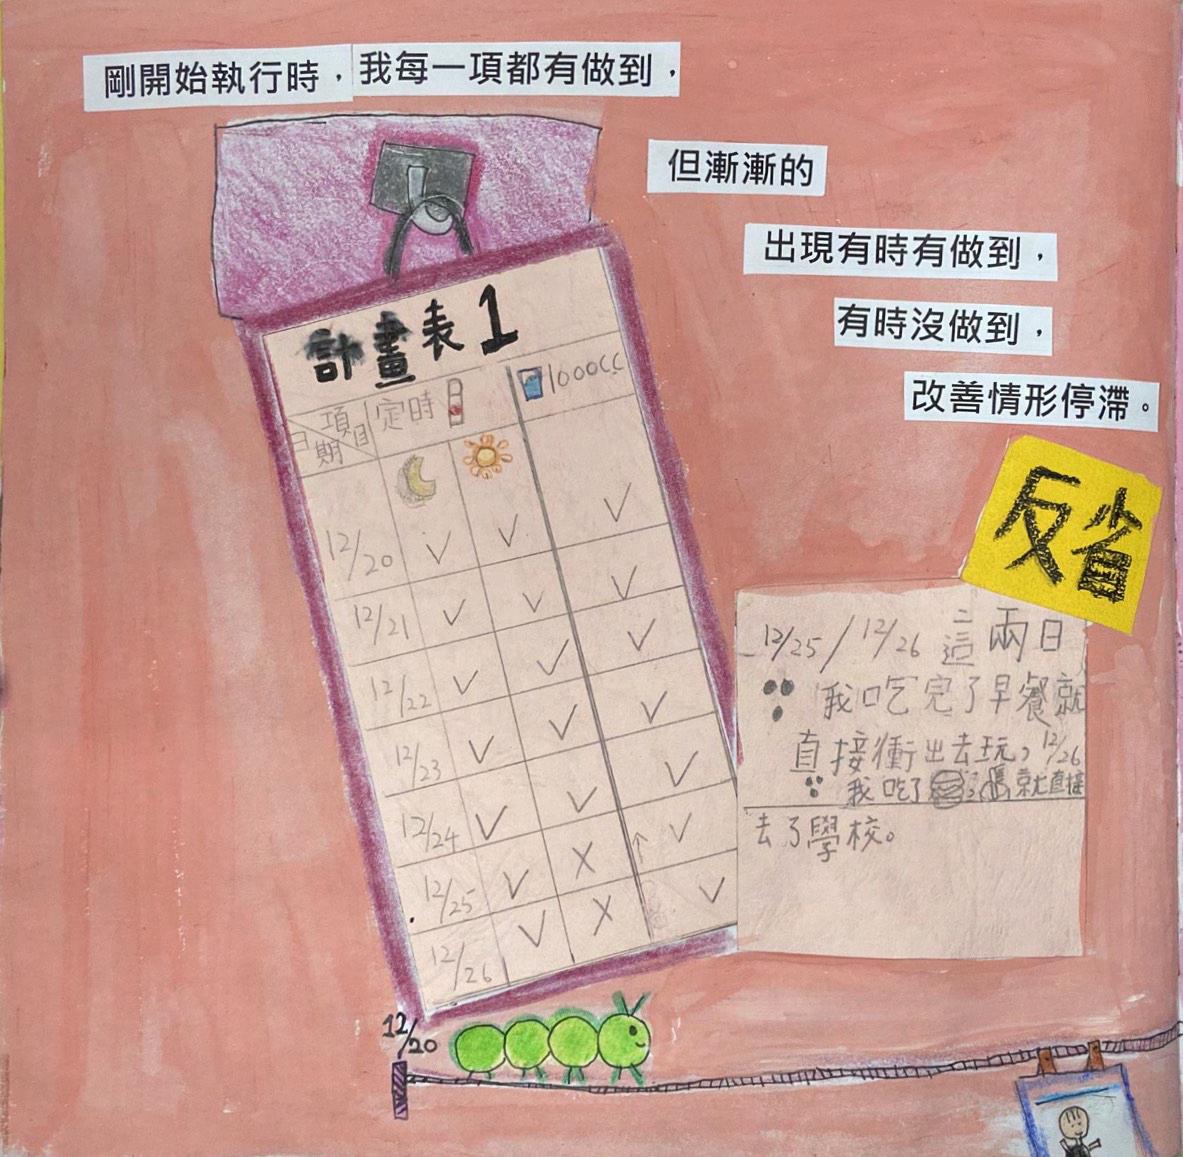 剛開始執行時，我每一項都有做到，
但漸漸的
出現有時有做到，
有時沒做到，
改善情形停滯。
計畫表1
項目
日期
定時
1000CC
12/20
12/21
12/22
12/23
12/24
12/25
12/26
反省
12/25/12/26這兩日
我吃完了早餐就
直接衝出去玩，12/26
我吃了 就直接
去了學校。
12/20